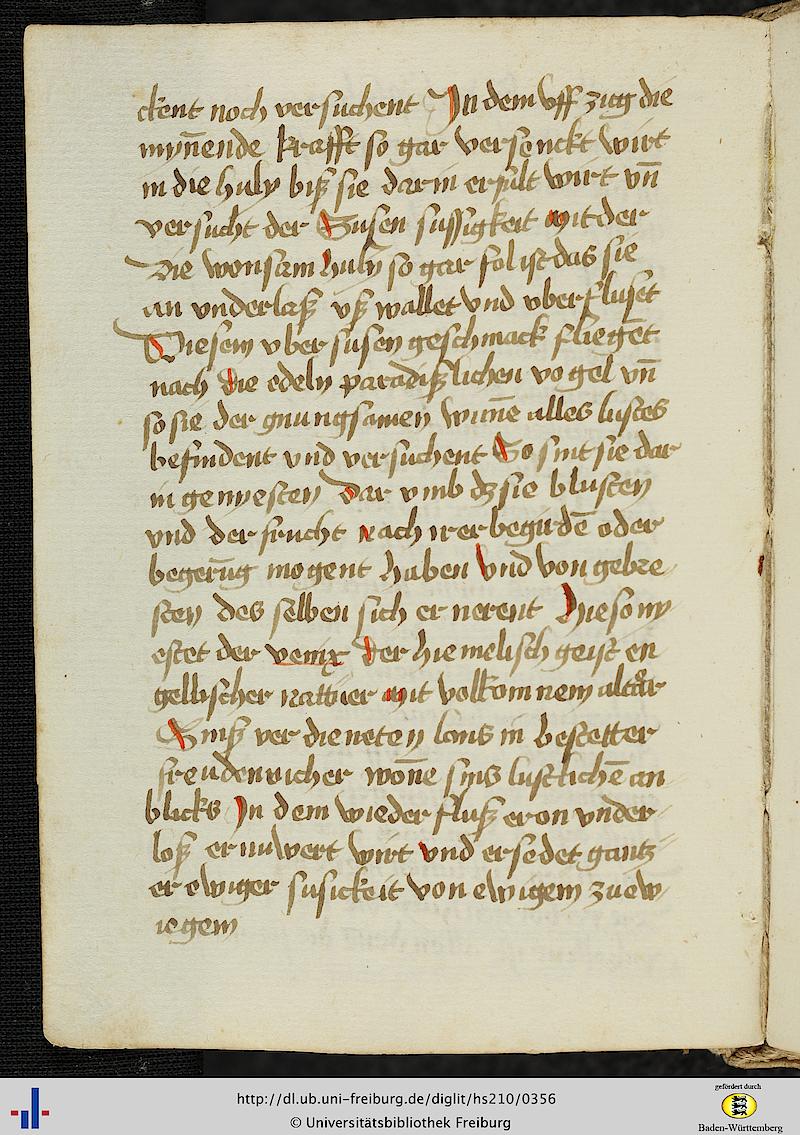 ckent noch versuchent In dem vff zug die
mynnende krafft so gar versenckt wirt
in die huly biß sie darin erfult wirt vn̄
versucht der Susen sussigkeit mit der
Die wonsam huly so gar fol ist das sie
an vnderlaß vß wallet vnd vberfluset
Diesem vber susen geschmack fliegēt
nach die edeln paradißlichen vogel vn̄
so sie der gnungsamen wūne alles lustes
befindent vnd versuchent So sint sie dar
in genyesten dar vmb dz sie blusten
vnd der frucht nach irer begirdē oder
begerūg mogent haben Vnd von gebre-
sten des selben sich er nerent Hie so ny-
estet der venix der hiemelisch geist en
gelbischer natuer mit volkomnem altar
Sniß ver dieneten lons in bestetter
freudenricher wōne sins lustlichē an-
blicks In dem wieder fluß er on vnder-
loß er nuwert wirt vnd ersedet gantz-
er ewiger susickeit von ewigem zu ew-
iegem
http://dl.ub.uni-freiburg.de/diglit/hs210/0356
© Universitätsbibliothek Freiburg
gefördert durch
Baden-Württemberg